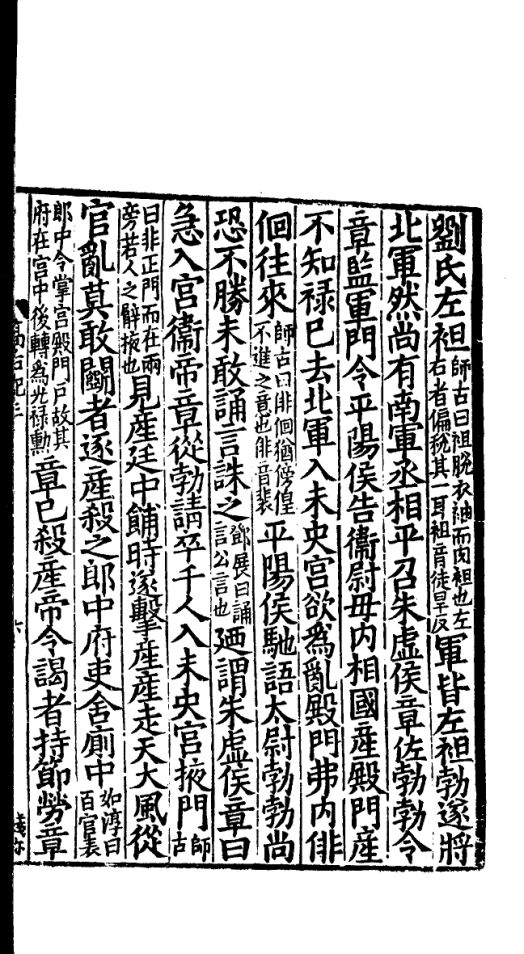 劉氏左袒師古曰袒脫衣袖而肉袒也左右者偏脫其一耳袒音徒旱反軍皆左袒勃遂將
北軍然尚有南軍丞相平召朱虛侯章佐勃勃令
章監軍門令平陽侯告衞尉毋内相國產殿門產
不知禄已去北軍入未央宫欲爲亂殿門弗内俳
佪往來師古曰俳佪猶傍偟不進之意也俳音裴平陽侯馳語太尉勃勃尚
恐不勝未敢誦言誅之鄧展曰誦言公言也廼謂朱虛侯章曰
急入宫衞帝章從勃請卒千人入未央宫掖門師古
曰非正門而在兩旁若人之臂掖也見產廷中餔時遂擊產產走天大風從
官亂莫敢鬭者逐產殺之郎中府吏舍廁中如淳曰百官表
郎中令掌宫殿門户故其府在宫中後轉爲光禄勳章已殺產帝令謁者持節勞章
高后紀三
六